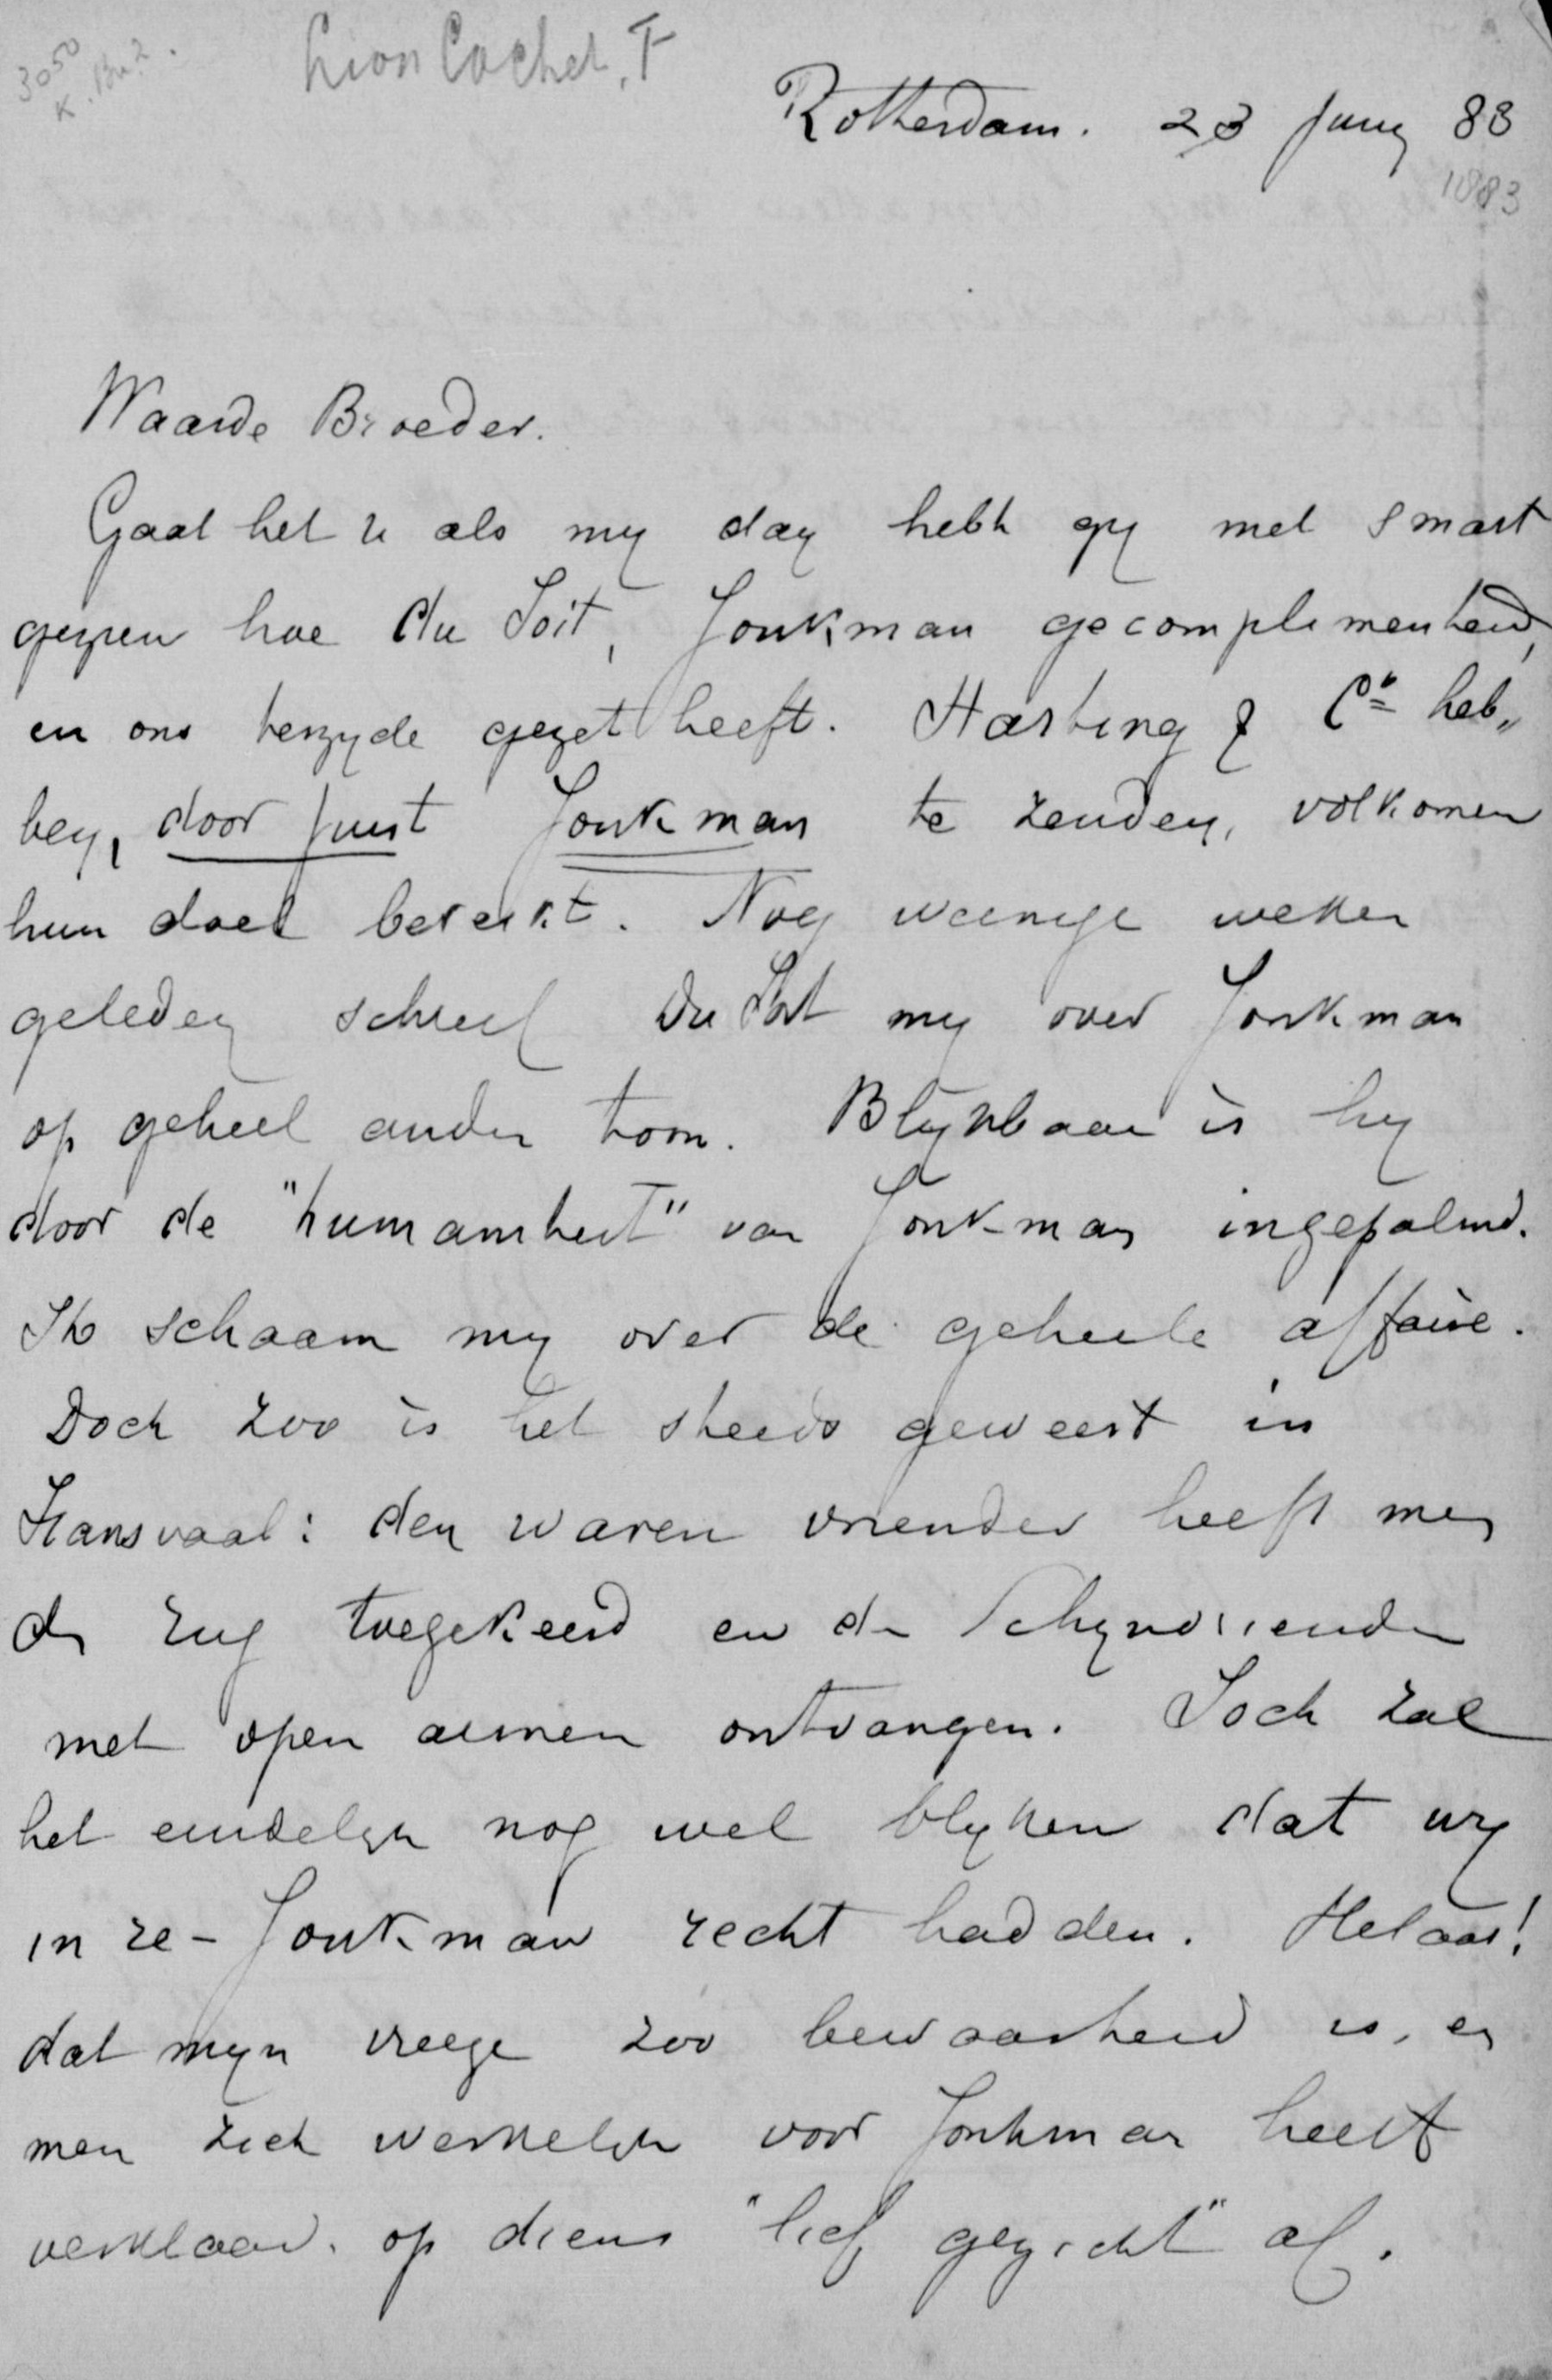 3050
K. Bu 2.
Lion Cachet, F
Rotterdam. 23 Juny 83
1883
Waarde Broeder.
Gaat het u als my dan hebt gy met smart
gezien hoe du Toit, Jonkman gecomplimenteerd,
en ons terzyde gezet heeft. Harting & Co heb„
ben, door juist Jonkman te zenden, volkomen
hun doel bereikt. Nog weenige weken
geleden schreef Du Toit my over Jonkman
op geheel ander toon. Blykbaar is hy
door de "humaniteit" van Jonkman ingepalmd.
Ik schaam my over de geheele affaire.
Doch zoo is het steeds geweest in
Transvaal: den waren vrienden heeft men
de rug toegekeerd en de schynvrienden
met open armen ontvangen. Toch zal
het eindelyk nog wel blyken dat wy
in re - Jonkman recht hadden. Helaas!
dat myn vreeze zoo bewaarheid is, en
men zich werkelyk voor Jonkman heeft
verklaard. op diens "lief gezicht" af.